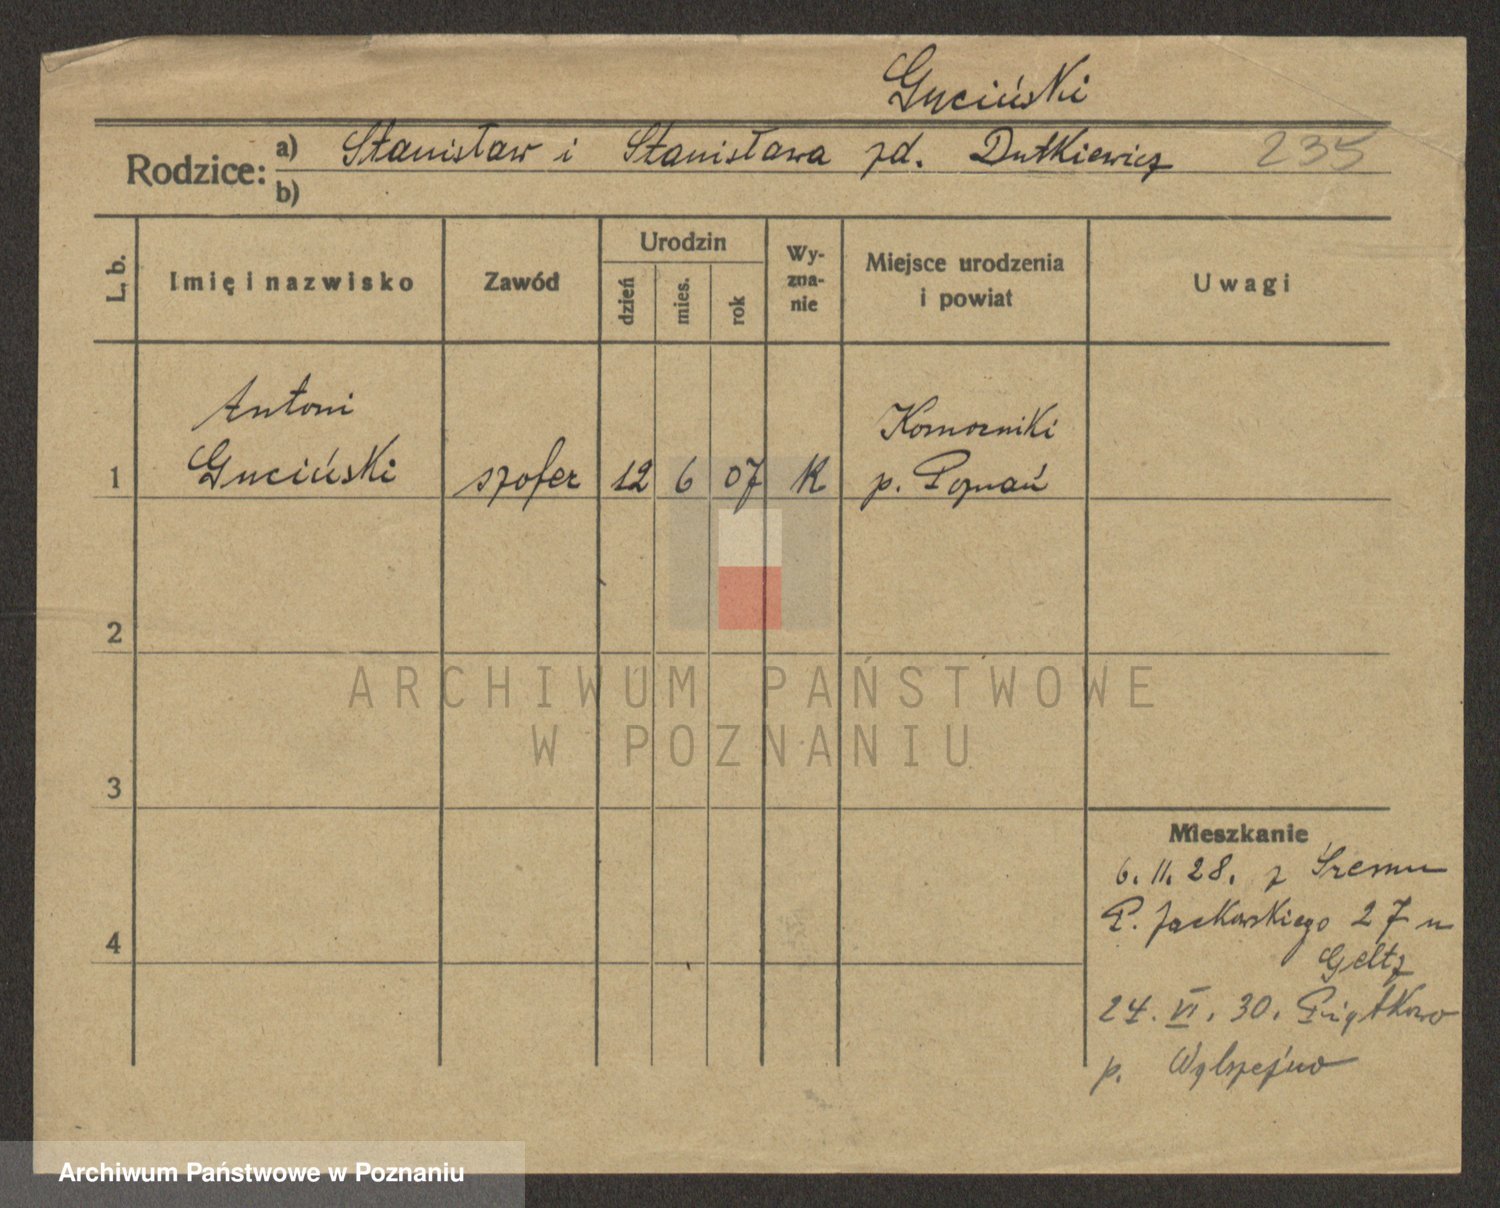 Guciński
Rodzice: a) Stanisław i Stanisława zd. Dutkiewicz 235
b)
L. b. Imię i nazwisko Zawód Urodzin dzień mies. rok Wyznanie Miejsce urodzenia i powiat Uwagi
Antoni Komorniki
1 Guciński szofer 12 6 07 K p. Poznań
2
ARCHIWUM PAŃSTWOWE
W POZNANIU
3
Mieszkanie
6. 11. 28. z Śremu
P. Jackowskiego 27 u
4
Geltz
24. VI. 30. Piątkowo
p.
Archiwum Państwowe w Poznaniu